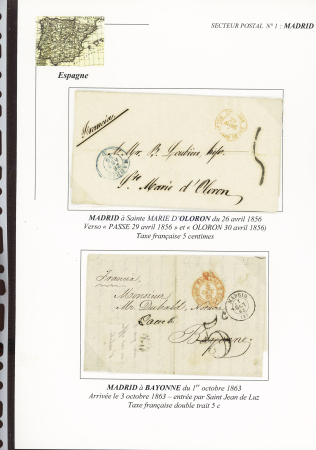 SECTEUR POSTAL N° 1 : MADRID
Espagne
Ste Marie d'Oloron
MADRID à Sainte MARIE D'OLORON du 26 avril 1856
Verso « PASSE 29 avril 1856 » et « OLORON 30 avril 1856)
Taxe française 5 centimes
Francia
MADRID
Monsieur
Bayonne
MADRID à BAYONNE du 1er octobre 1863
Arrivée le 3 octobre 1863 – entrée par Saint Jean de Luz
Taxe française double trait 5 c